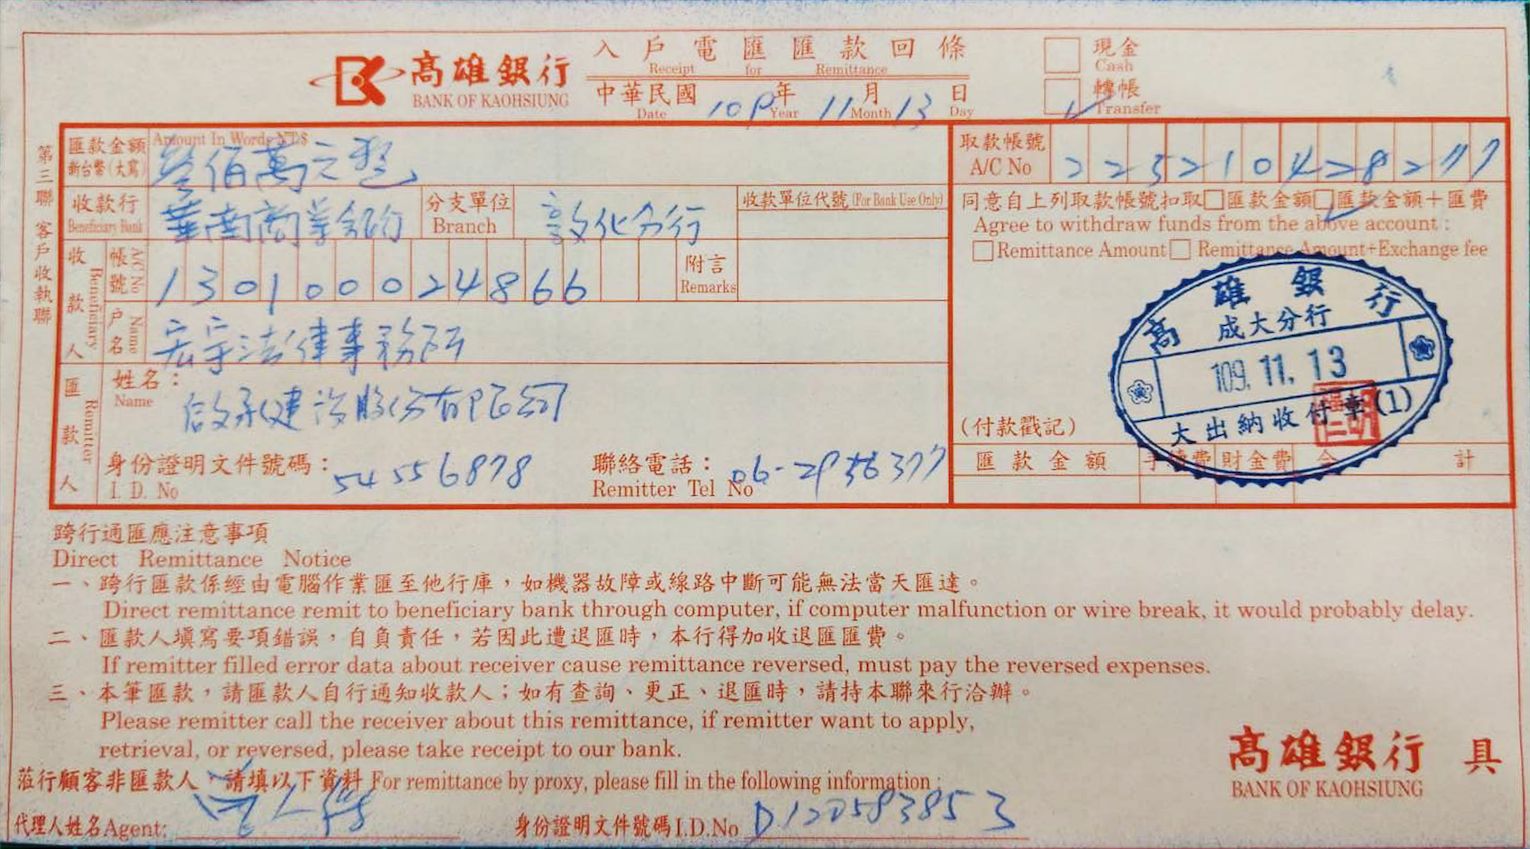 高雄銀行
BANK OF KAOHSIUNG
入戶電匯匯款回條
Receipt for Remittance
中華民國 109年 11月 13日
Date Year Month Day
現金
Cash
轉帳
Transfer
第三聯 客戶收執聯
匯款金額
新台幣(大寫)
Amount In Words NT$
佰萬元整
取款帳號
A/C No
收款行
Beneficiary Bank
華南商業銀行
分支單位
Branch
敦化分行
收款單位代號(For Bank Use Only)
同意自上列取款帳號扣取□匯款金額□匯款金額+匯費
Agree to withdraw funds from the above account :
□Remittance Amount□ Remittance Amount+Exchange fee
收款人
Beneficiary
帳號
A/C No
130100024866
附言
Remarks
戶名
Name
宏宗法律事務所
匯款人
Remitter
姓名:
Name
啟承建設股份有限公司
身份證明文件號碼:
I. D. No
54556878
聯絡電話:
Remitter Tel No
06-2956377
高雄銀行
成大分行
109. 11. 13
大出納收付章(1)
(付款戳記)
匯款金額
手續費
財金費
合計
跨行通匯應注意事項
Direct Remittance Notice
一、跨行匯款係經由電腦作業匯至他行庫,如機器故障或線路中斷可能無法當天匯達。
Direct remittance remit to beneficiary bank through computer, if computer malfunction or wire break, it would probably delay.
二、匯款人填寫要項錯誤,自負責任,若因此遭退匯時,本行得加收退匯匯費。
If remitter filled error data about receiver cause remittance reversed, must pay the reversed expenses.
三、本筆匯款,請匯款人自行通知收款人;如有查詢、更正、退匯時,請持本聯來行洽辦。
Please remitter call the receiver about this remittance, if remitter want to apply,
retrieval, or reversed, please take receipt to our bank.
高雄銀行 具
BANK OF KAOHSIUNG
蒞行顧客非匯款人,請填以下資料 For remittance by proxy, please fill in the following information :
代理人姓名Agent:
身份證明文件號碼I.D.No D120583853